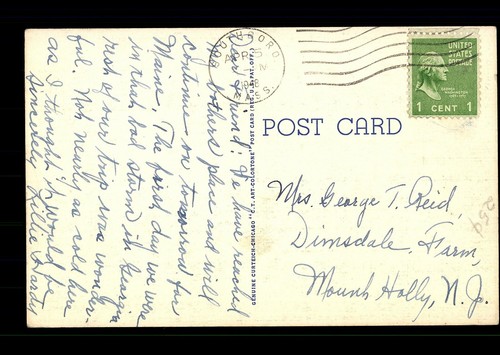 Dear Friend: We have reached
my brothers place and will
continue on tomorrow for
Maine. The first day we were
in that bad storm in Georgia
rest of our trip was wonder-
ful. Not nearly as cold here
as I thought it would be
Sincerely Lillie Hardy
GENUINE CURTEICH-CHICAGO "C.T. ART-COLORTONE" POST CARD (REG. U.S. PAT. OFF.)
POST CARD
UNITED
STATES
POSTAGE
GEORGE
WASHINGTON
1 CENT 1
Mrs. George T. Reid,
Dimsdale Farm,
Mount Holly, N. J.
259